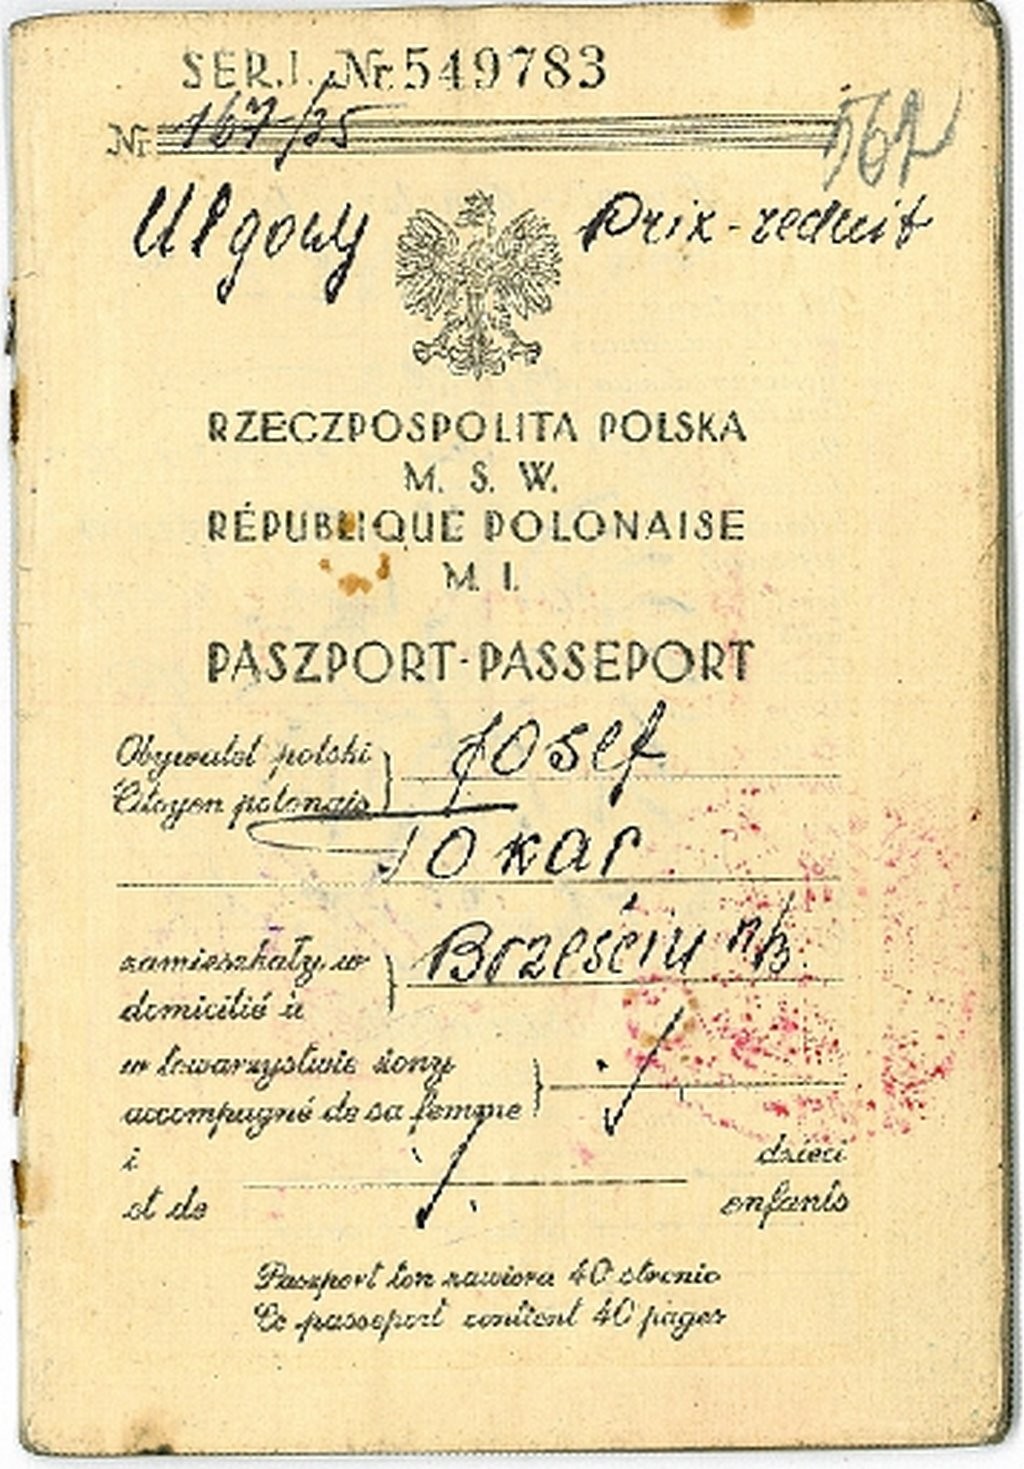 SER. I. Nr. 549783
Nr. 167/35 562
Ulgowy Prix-reduit
RZECZPOSPOLITA POLSKA
M. S. W.
RÉPUBLIQUE POLONAISE
M. I.
PASZPORT-PASSEPORT
Obywatel polski Josef
Citoyen polonais
Tokar
zamieszkały w Brześciu n/B.
domicilié à
w towarzystwie żony
accompagné de sa femme
i dzieci
et de enfants
Paszport ten zawiera 40 stronic
Ce passeport contient 40 pages